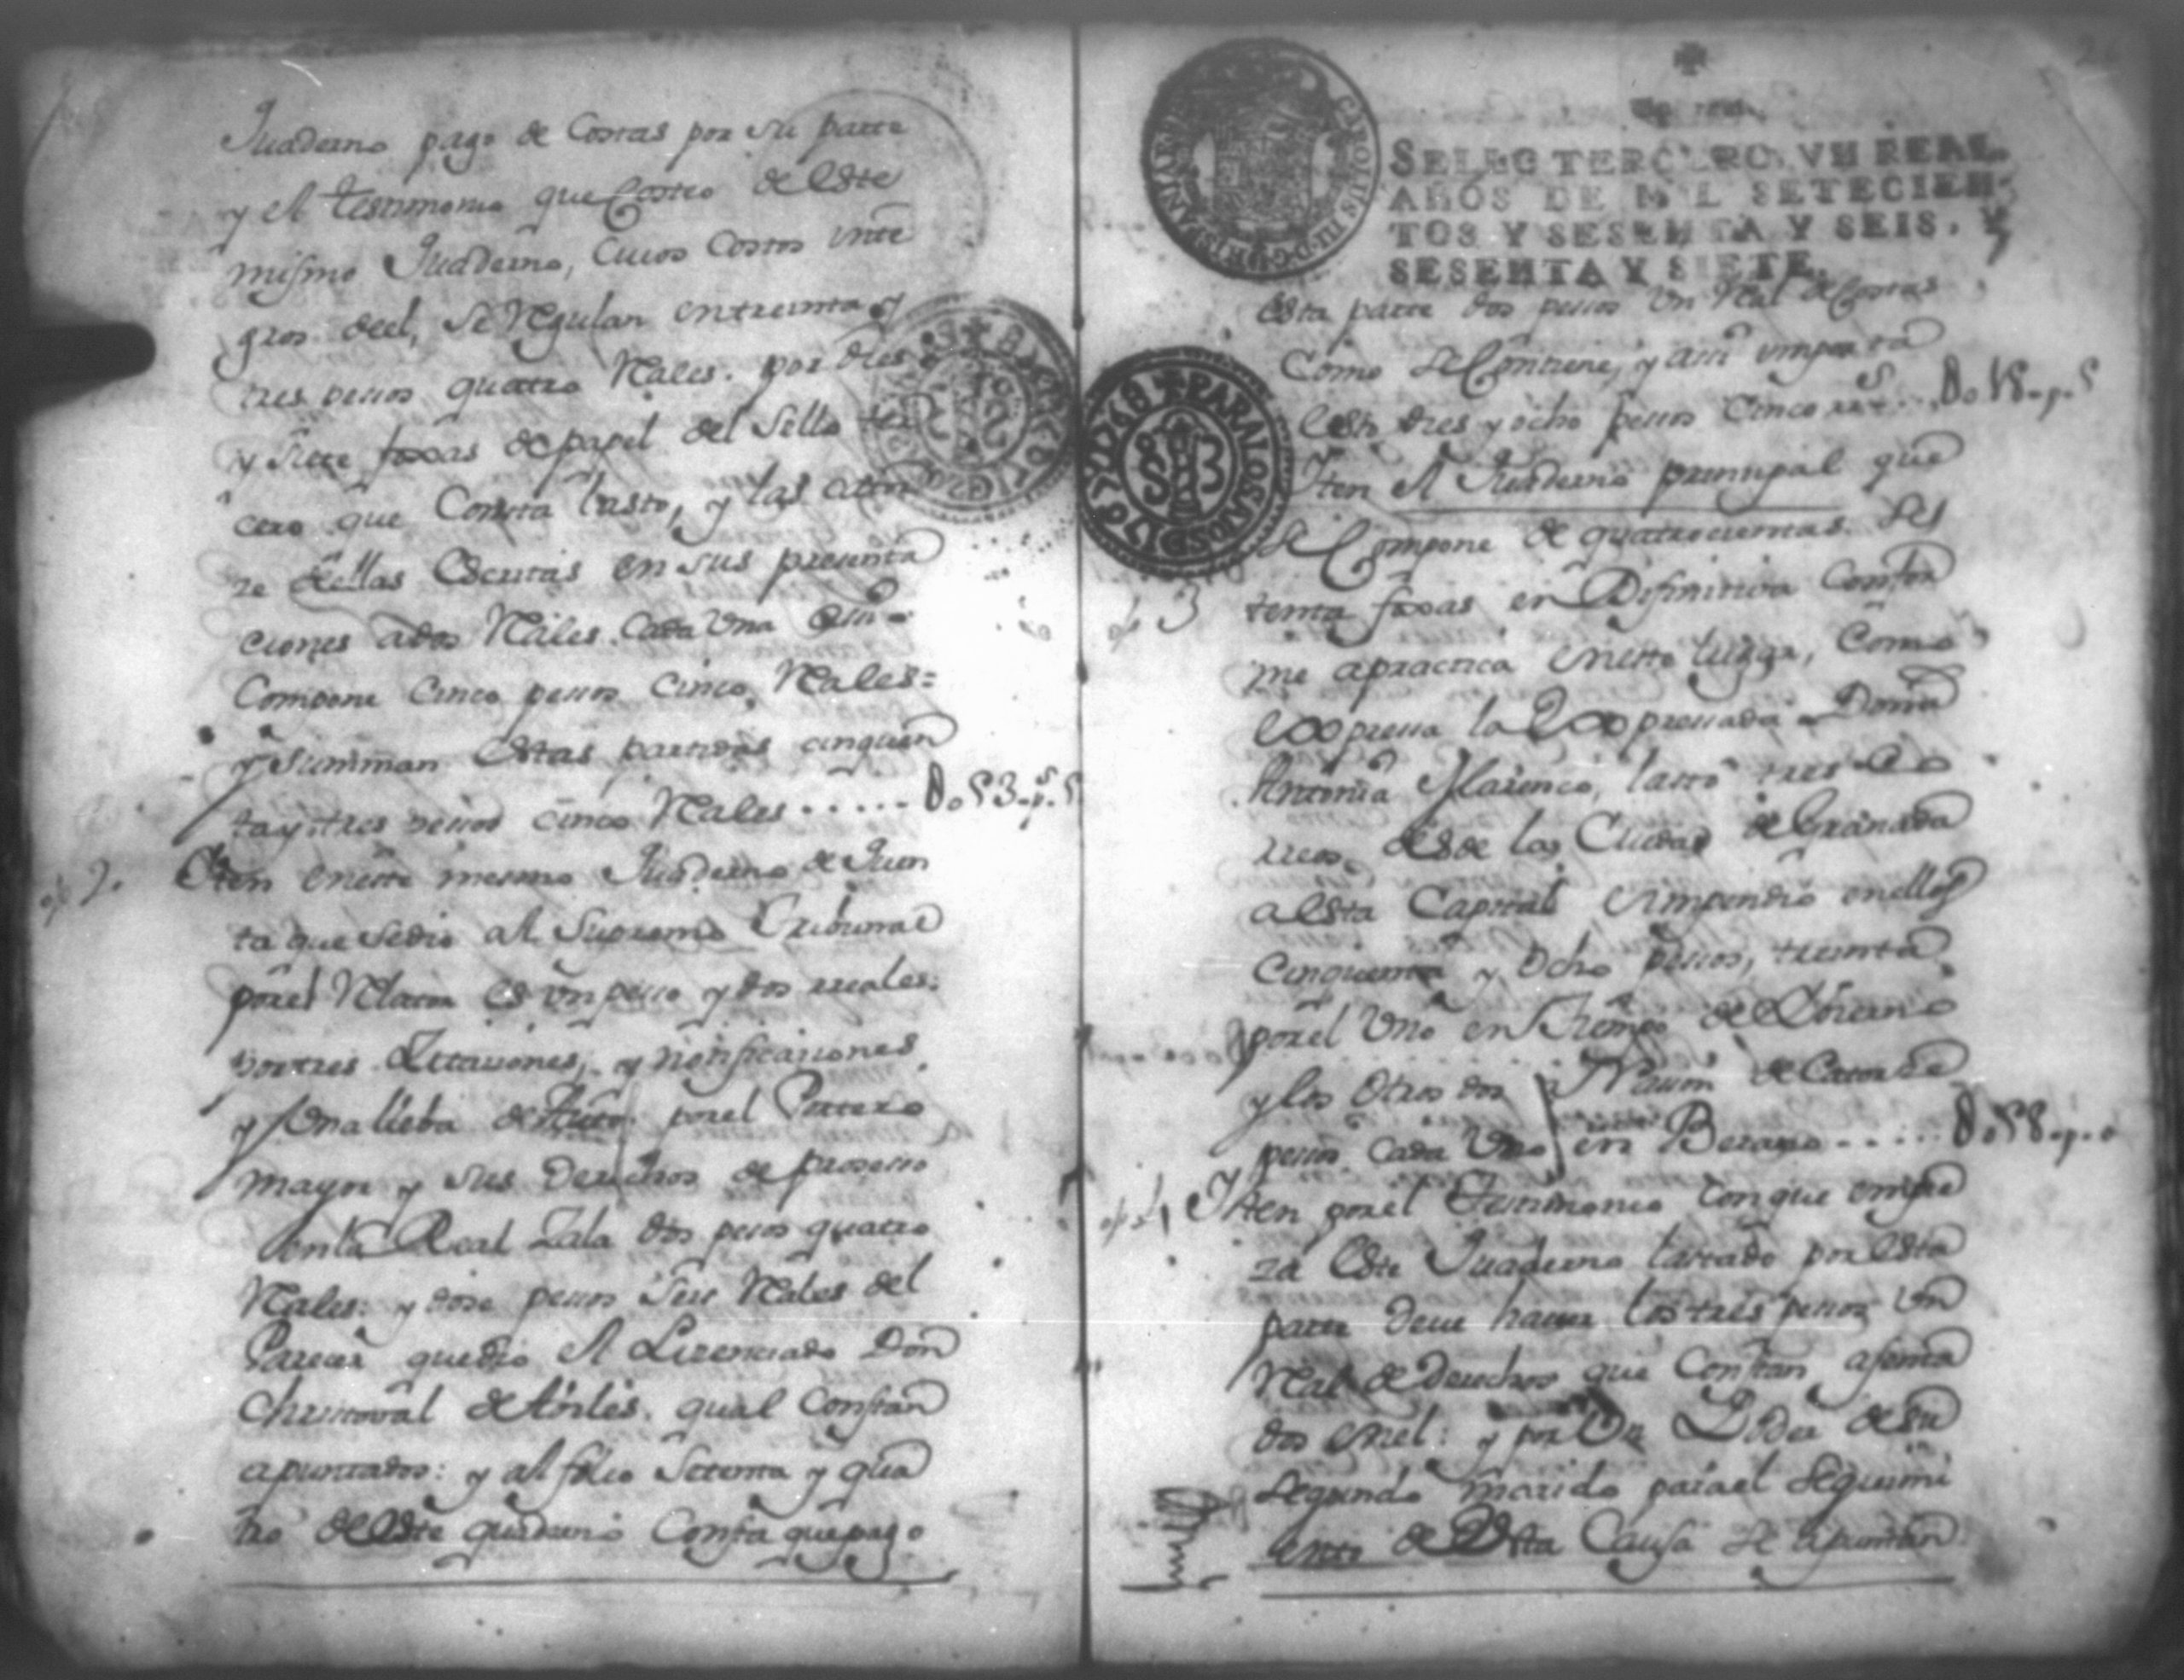 Quaderno pago de Costas por su parte
y el testimonio que Costeo de Este
mismo Quaderno, Cuios Costos inte
gros deel, se Regulan entreinta y
tres pessos quatro Reales. por dies
y siete foxas de papel del Sello ter
cero que Consta lasto, y las
re dellas Escritas en sus presenta
ciones ados Reales Cada Una
Compone Cinco pessos Cinco Reales=
y summan Estas partidas cinquen
tay tres pessos cinco Reales ..... Do53.ps.5
2. Iten eneste mesmo Quaderno de Quen
ta que sedio al Supremo Tribunal
porel Relator es un pesso y dos reales:
por tres Citaciones, y notificaciones
y Una lieba de Autos porel Portero
mayor y sus Derechos de processo
en la Real Zala dos pesos quatro
Reales: y dose pessos seis Reales del
Parecer quedio el Lizenciado Don
Christoval de Aviles. qual Constan
apuntados: y al folio Setenta y qua
tro de Este quaderno Consta que pago
SELLO TERCERO, VN REAL.
AÑOS DE MIL SETECIEN-
TOS Y SESENTA Y SEIS, Y
SESENTA Y SIETE.
CAROLUS III D.G. HISPANIAR
PARA LOS AÑOS D 1768 Y 1769
Esta parte dos pessos Un Real de Costas
Como se Contiene, y assi importa
Esto dies y ocho pessos Cinco rrs... Do18.p.5
3 Iten el Quaderno prinsipal que
se Compone de quatrocientas
tenta foxas en Difinitiva Confor
me a practica eneste lugar, Como
Expressa la Expressada Doña
Antonia lasto tres Co
rreos desde la Ciudad de Granada
a Esta Capital impendio enellos
Cinquenta y Ocho pessos, treinta
porel Uno en tiempo de
y los Otros dos a Rason de Catorce
pessos Cada Uno en Berano ..... Do58.p.o
4 Iten porel Testimonio Con que empie
za Este Quaderno lastado por Esta
parte deve haver los tres pessos Un
Real de Derechos que Constan asenta
dos enel: y por Un Poder de su
segundo marido parael seguimi
ento de Esta Causa se apuntan